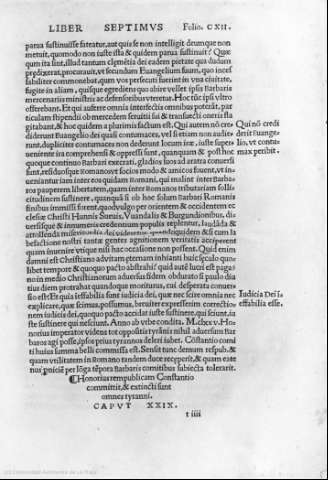 LIBER SEPTIMVS Folio. CXII.
parua sustinuisse fateatur, aut quis se non intelligit deumque non
metuit, quomodo non iuste ista & quidem parua sustinuit? Quæ
quum ita sint, illud tantum clemétia dei eadem pietate qua dudum
prędixerat, procurauit, vt secundum Euangelium suum, quo inces
sabiliter commonebat, quum vos persecuti fuerint in vna ciuitate,
fugite in aliam, quisque egrediens quo abire vellet ipsis Barbaris
mercenariis ministris ac defensoribus vteretur. Hoc túc ipsi vltro
offerebant. Et qui auferre omnia interfectis omnibus poterát, par
ticulam stipendii ob mercedem seruitii sui & transuecti oneris fla
gitabant, & hoc quidem a plurimis factum est. Qui autem nó cre
diderunt Euangelio dei quasi contumaces, vel si etiam non audie
runt, dupliciter contumaces non dederunt locum iræ, iuste super
ueniente ira comprehensi & oppressi sunt, quanquam & post hoc
quoque continuo Barbari execrati, gladios suos ad aratra conuersi
sunt, residuosque Romanos vt socios modo & amicos fouent, vt in
ueniantur iam inter eos quidam Romani, qui malint inter Barba
ros pauperem libertatem, quam inter Romanos tributariam solli
citudinem sustinere, quanquã si ob hoc solum Barbari Romanis
finibus immissi forent, quod vulgo per orientem & occidentem ec
clesiæ Christi Hunnis Sueuis, Vuandalis & Burgundionibus, di
uersisque & innumeris credentium populis replentur, laudáda &
attollenda misericordia dei videretur, quandoquidem & si cum la
befactione nostri tantæ gentes agnitionem veritatis acciperent
quam inuenire vtique nisi hac occasione non possent. Quid enim
damni est Christiano ad vitam æternam inhianti huic seculo quo
libet tempore & quoquo pacto abstrahi? quid auté lucri est paga
no in medio Christianorum aduersus fidem obdurato si paulo diu
tius diem protrahat quandoque moriturus, cui desperata conuer
sio est? Et quia ineffabilia sunt iudicia dei, quæ nec scire omnia nec
explicare, quæ scimus, possumus, breuiter expresserim correctio
nem iudicis dei, quoquo pacto accidat iuste sustinere, qui sciunt, iu
ste sustinere qui nesciunt. Anno ab vrbe condita. M.clxv. Ho
norius imperator videns tot oppositis tyrannis nihil aduersum Bar
baros agi posse, ipsos prius tyrannos deleri iubet. Cõstantio comi
ti huius summa belli commissa est. Sensit tunc demum respub. &
quam vtilitatem in Romano tandem duce receperit, & quam eate
nus pniciē per lõga tēpora Barbaris comitibus subiecta tolerarit.
Qui nõ credi
derit Euange
lio, vt contu
max peribit.
Iudicia Dei i
effabilia esse.
¶ Honorius rempublicam Constantio
committit, & extincti sunt
omnes tyranni.
CAPVT XXIX.
t iiii